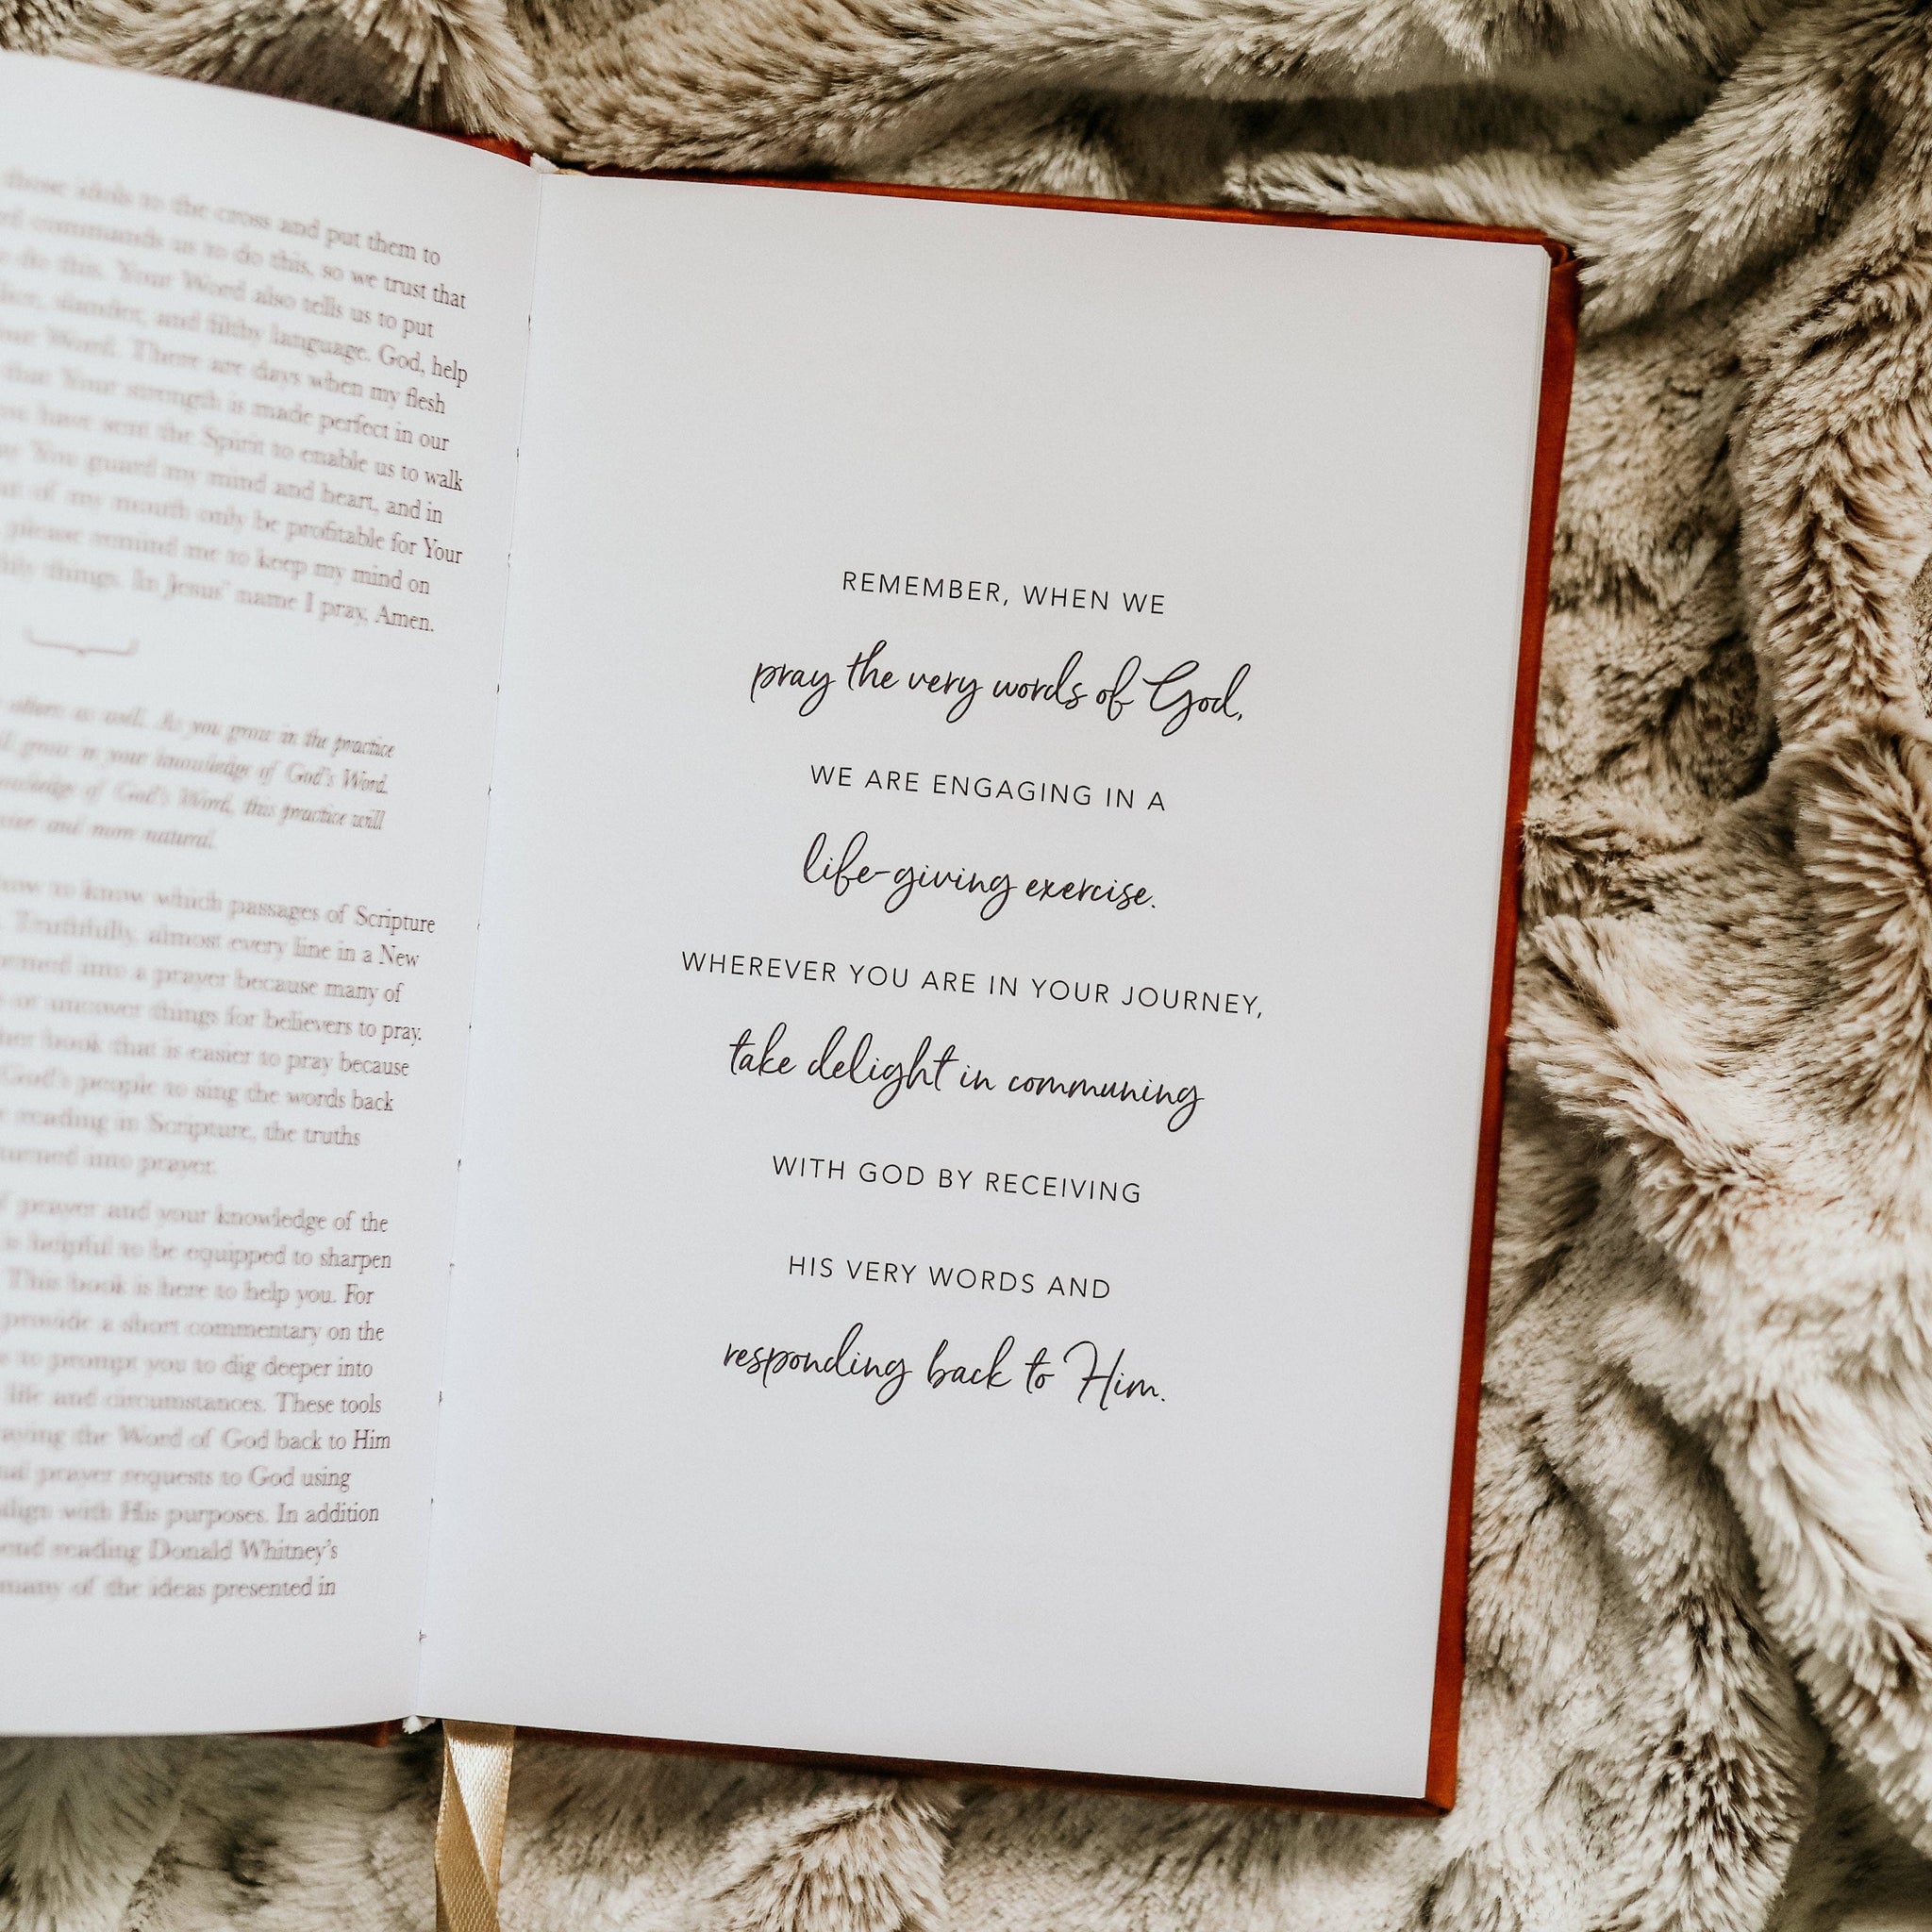 those idols to the cross and put them to
commands us to do this, so we trust that
do this. Your Word also tells us to put
slander, and filthy language. God, help
Word. There are days when my flesh
that Your strength is made perfect in our
have sent the Spirit to enable us to walk
You guard my mind and heart, and in
of my mouth only be profitable for Your
please remind me to keep my mind on
things. In Jesus' name I pray, Amen.
others as well. As you grow in the practice
grow in your knowledge of God's Word.
of God's Word, this practice will
and more natural.
to know which passages of Scripture
Truthfully, almost every line in a New
into a prayer because many of
or uncover things for believers to pray.
book that is easier to pray because
God's people to sing the words back
reading in Scripture, the truths
turned into prayer.
prayer and your knowledge of the
is helpful to be equipped to sharpen
This book is here to help you. For
provide a short commentary on the
to prompt you to dig deeper into
life and circumstances. These tools
the Word of God back to Him
prayer requests to God using
align with His purposes. In addition
reading Donald Whitney's
many of the ideas presented in
REMEMBER, WHEN WE
pray the very words of God,
WE ARE ENGAGING IN A
life-giving exercise.
WHEREVER YOU ARE IN YOUR JOURNEY,
take delight in communing
WITH GOD BY RECEIVING
HIS VERY WORDS AND
responding back to Him.